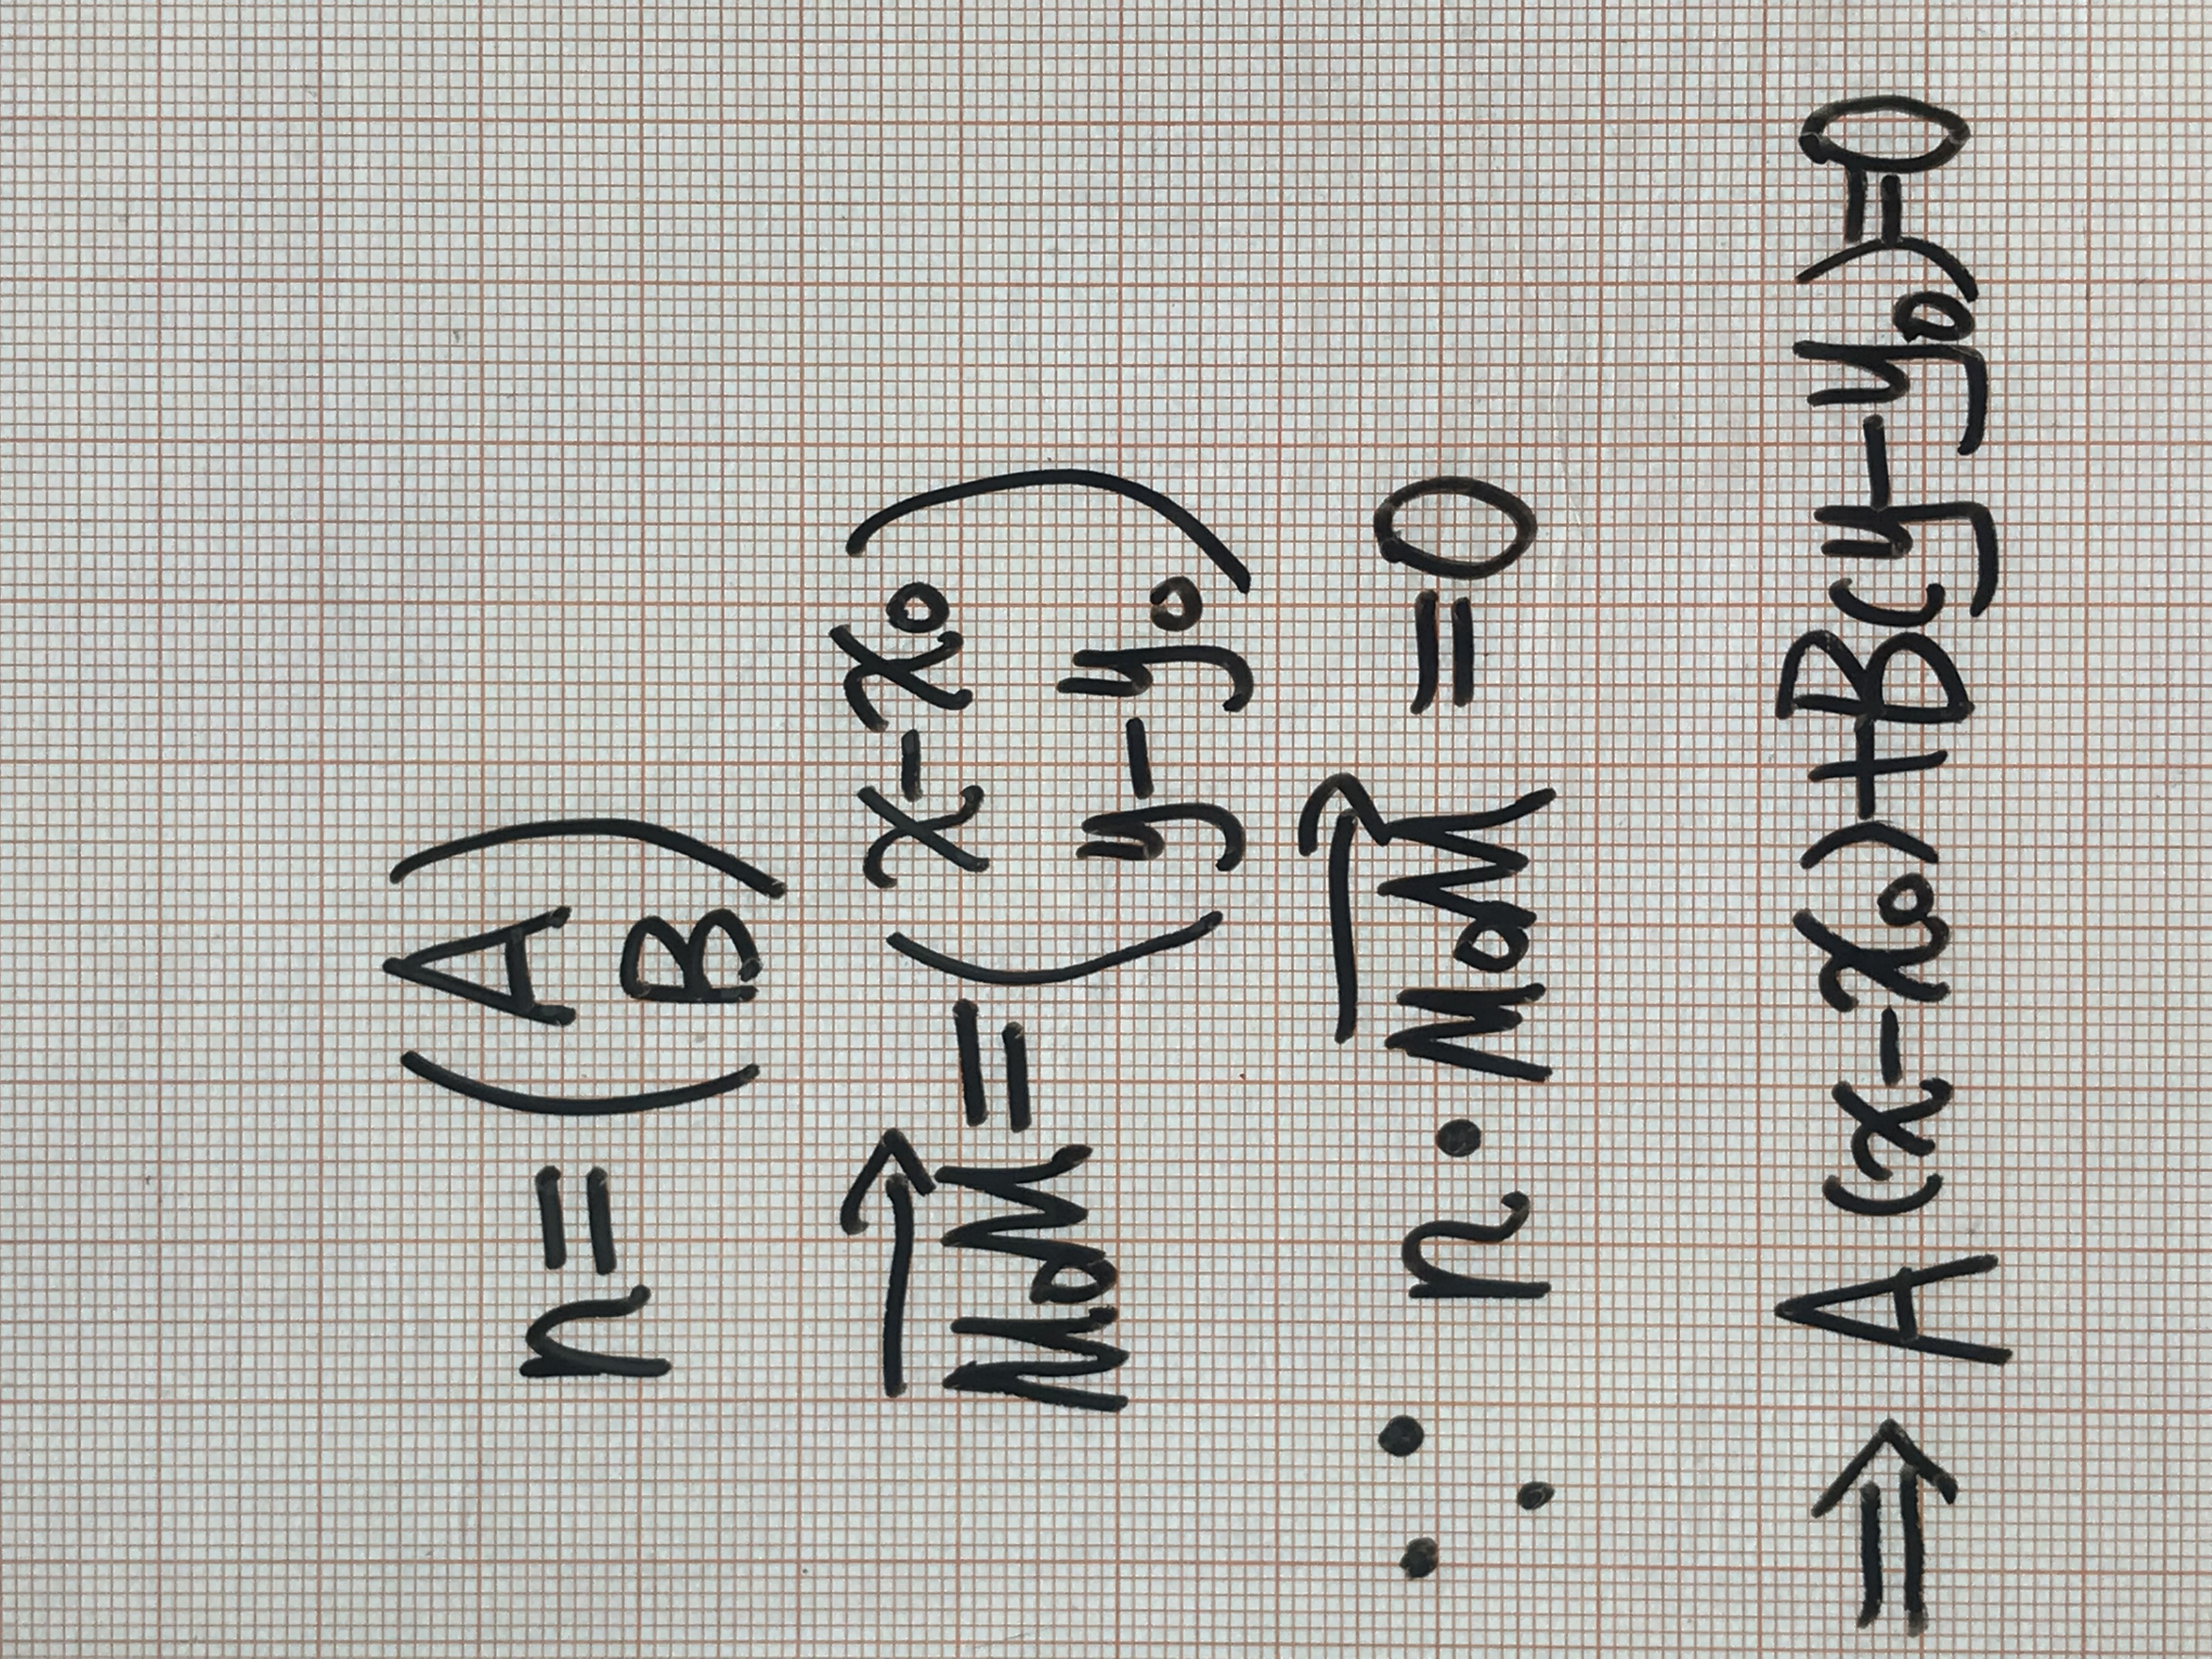 n=(A
B)
$\overrightarrow{M_0M}=\begin{pmatrix} x-x_0 \\ y-y_0 \end{pmatrix}$
∵ $n\cdot\overrightarrow{M_0M}=0$
⇒ $A(x-x_0)+B(y-y_0)=0$